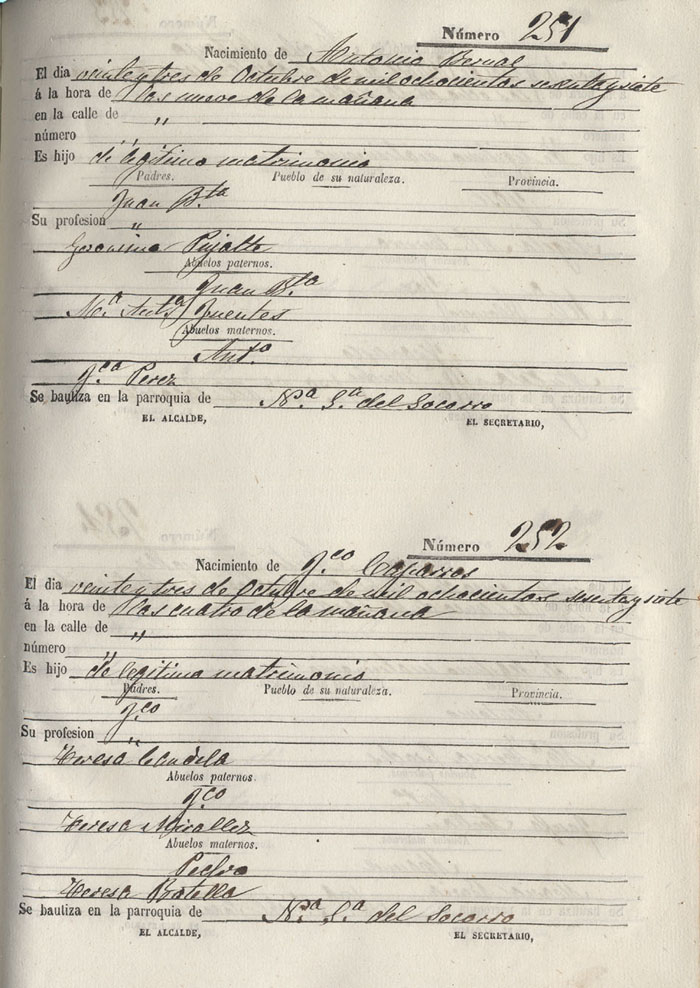 Número 251
Nacimiento de Antonia Bernal
El dia veinteytres de Octubre de mil ochocientos sesentaysiete
á la hora de las nueve de la mañana
en la calle de "
número "
Es hijo de legitimo matrimonio
Padres. Pueblo de su naturaleza. Provincia.
Juan Bta
Su profesion "
Geronima Pujalte
Abuelos paternos.
Juan Bta
Ma Anta Fuentes
Abuelos maternos.
Anto
Fca Perez
Se bautiza en la parroquia de Na Sa del Socorro
EL ALCALDE, EL SECRETARIO,
Número 252
Nacimiento de Fco Caparros
El dia veinteytres de Octubre de mil ochocientos sesentaysiete
á la hora de las cuatro de la mañana
en la calle de "
número "
Es hijo de legitimo matrimonio
Padres. Pueblo de su naturaleza. Provincia.
Fco
Su profesion "
Teresa Candela
Abuelos paternos.
Fco
Teresa Miralles
Abuelos maternos.
Pedro
Teresa Botella
Se bautiza en la parroquia de Na Sa del Socorro
EL ALCALDE, EL SECRETARIO,